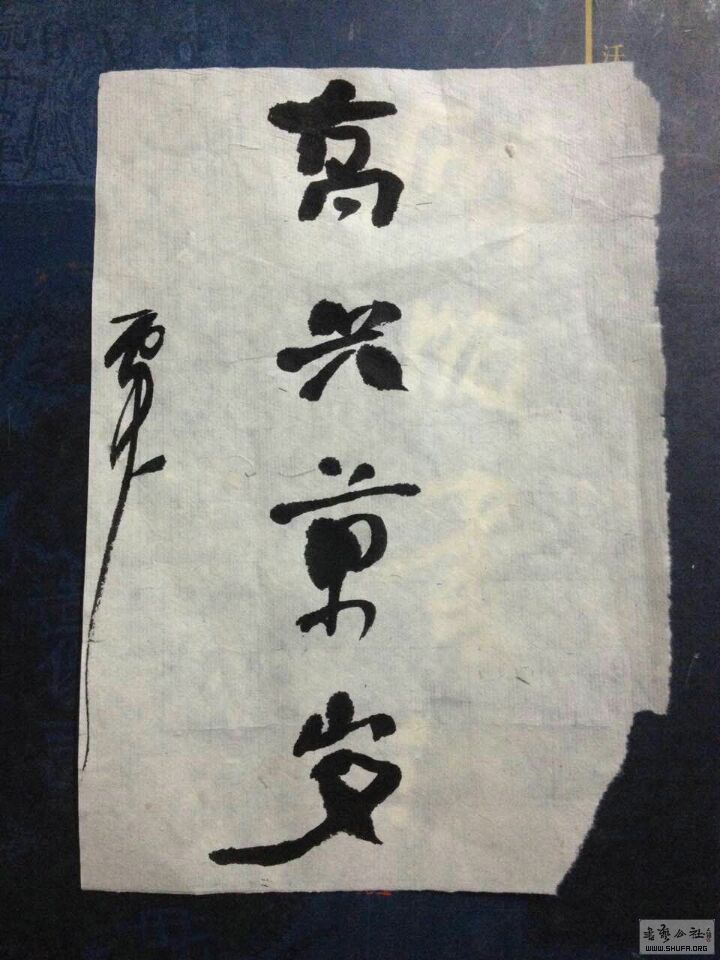 高兴万岁
活
书艺公社
WWW.SHUFA.ORG